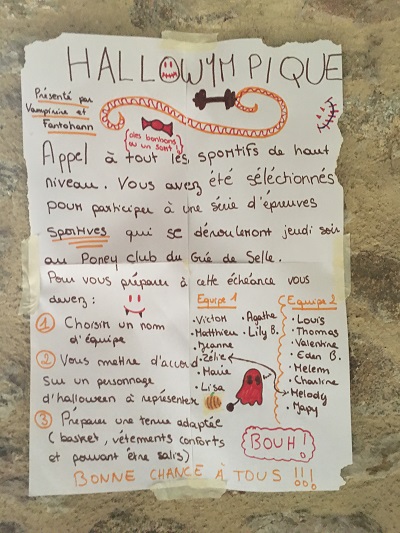 HALLOWYMPIQUE
Présenté par
Vampirine et
Fantohann
(des bonbons
ou un sort)
Appel à tout les sportifs de haut
niveau. Vous avez été séléctionnés
pour participer à une série d'épreuves
sportives qui se dérouleront jeudi soir
au Poney club du Gué de Selle.
Pour vous préparer à cette échéance vous
devez :
① Choisir un nom
d'équipe
② Vous mettre d'accord
sur un personnage
d'halloween à représenter
③ Préparer une tenue adaptée
(basket, vêtements conforts
et pouvant être salis)
Equipe 1
• Victor
• Matthieu
• Jeanne
• Zélie
• Marie
• Lisa
• Agathe
• Lily B.
Equipe 2
• Louis
• Thomas
• Valentine
• Eden B.
• Helem
• Charline
• Melody
• Mapy
BOUH !
BONNE CHANCE À TOUS !!!